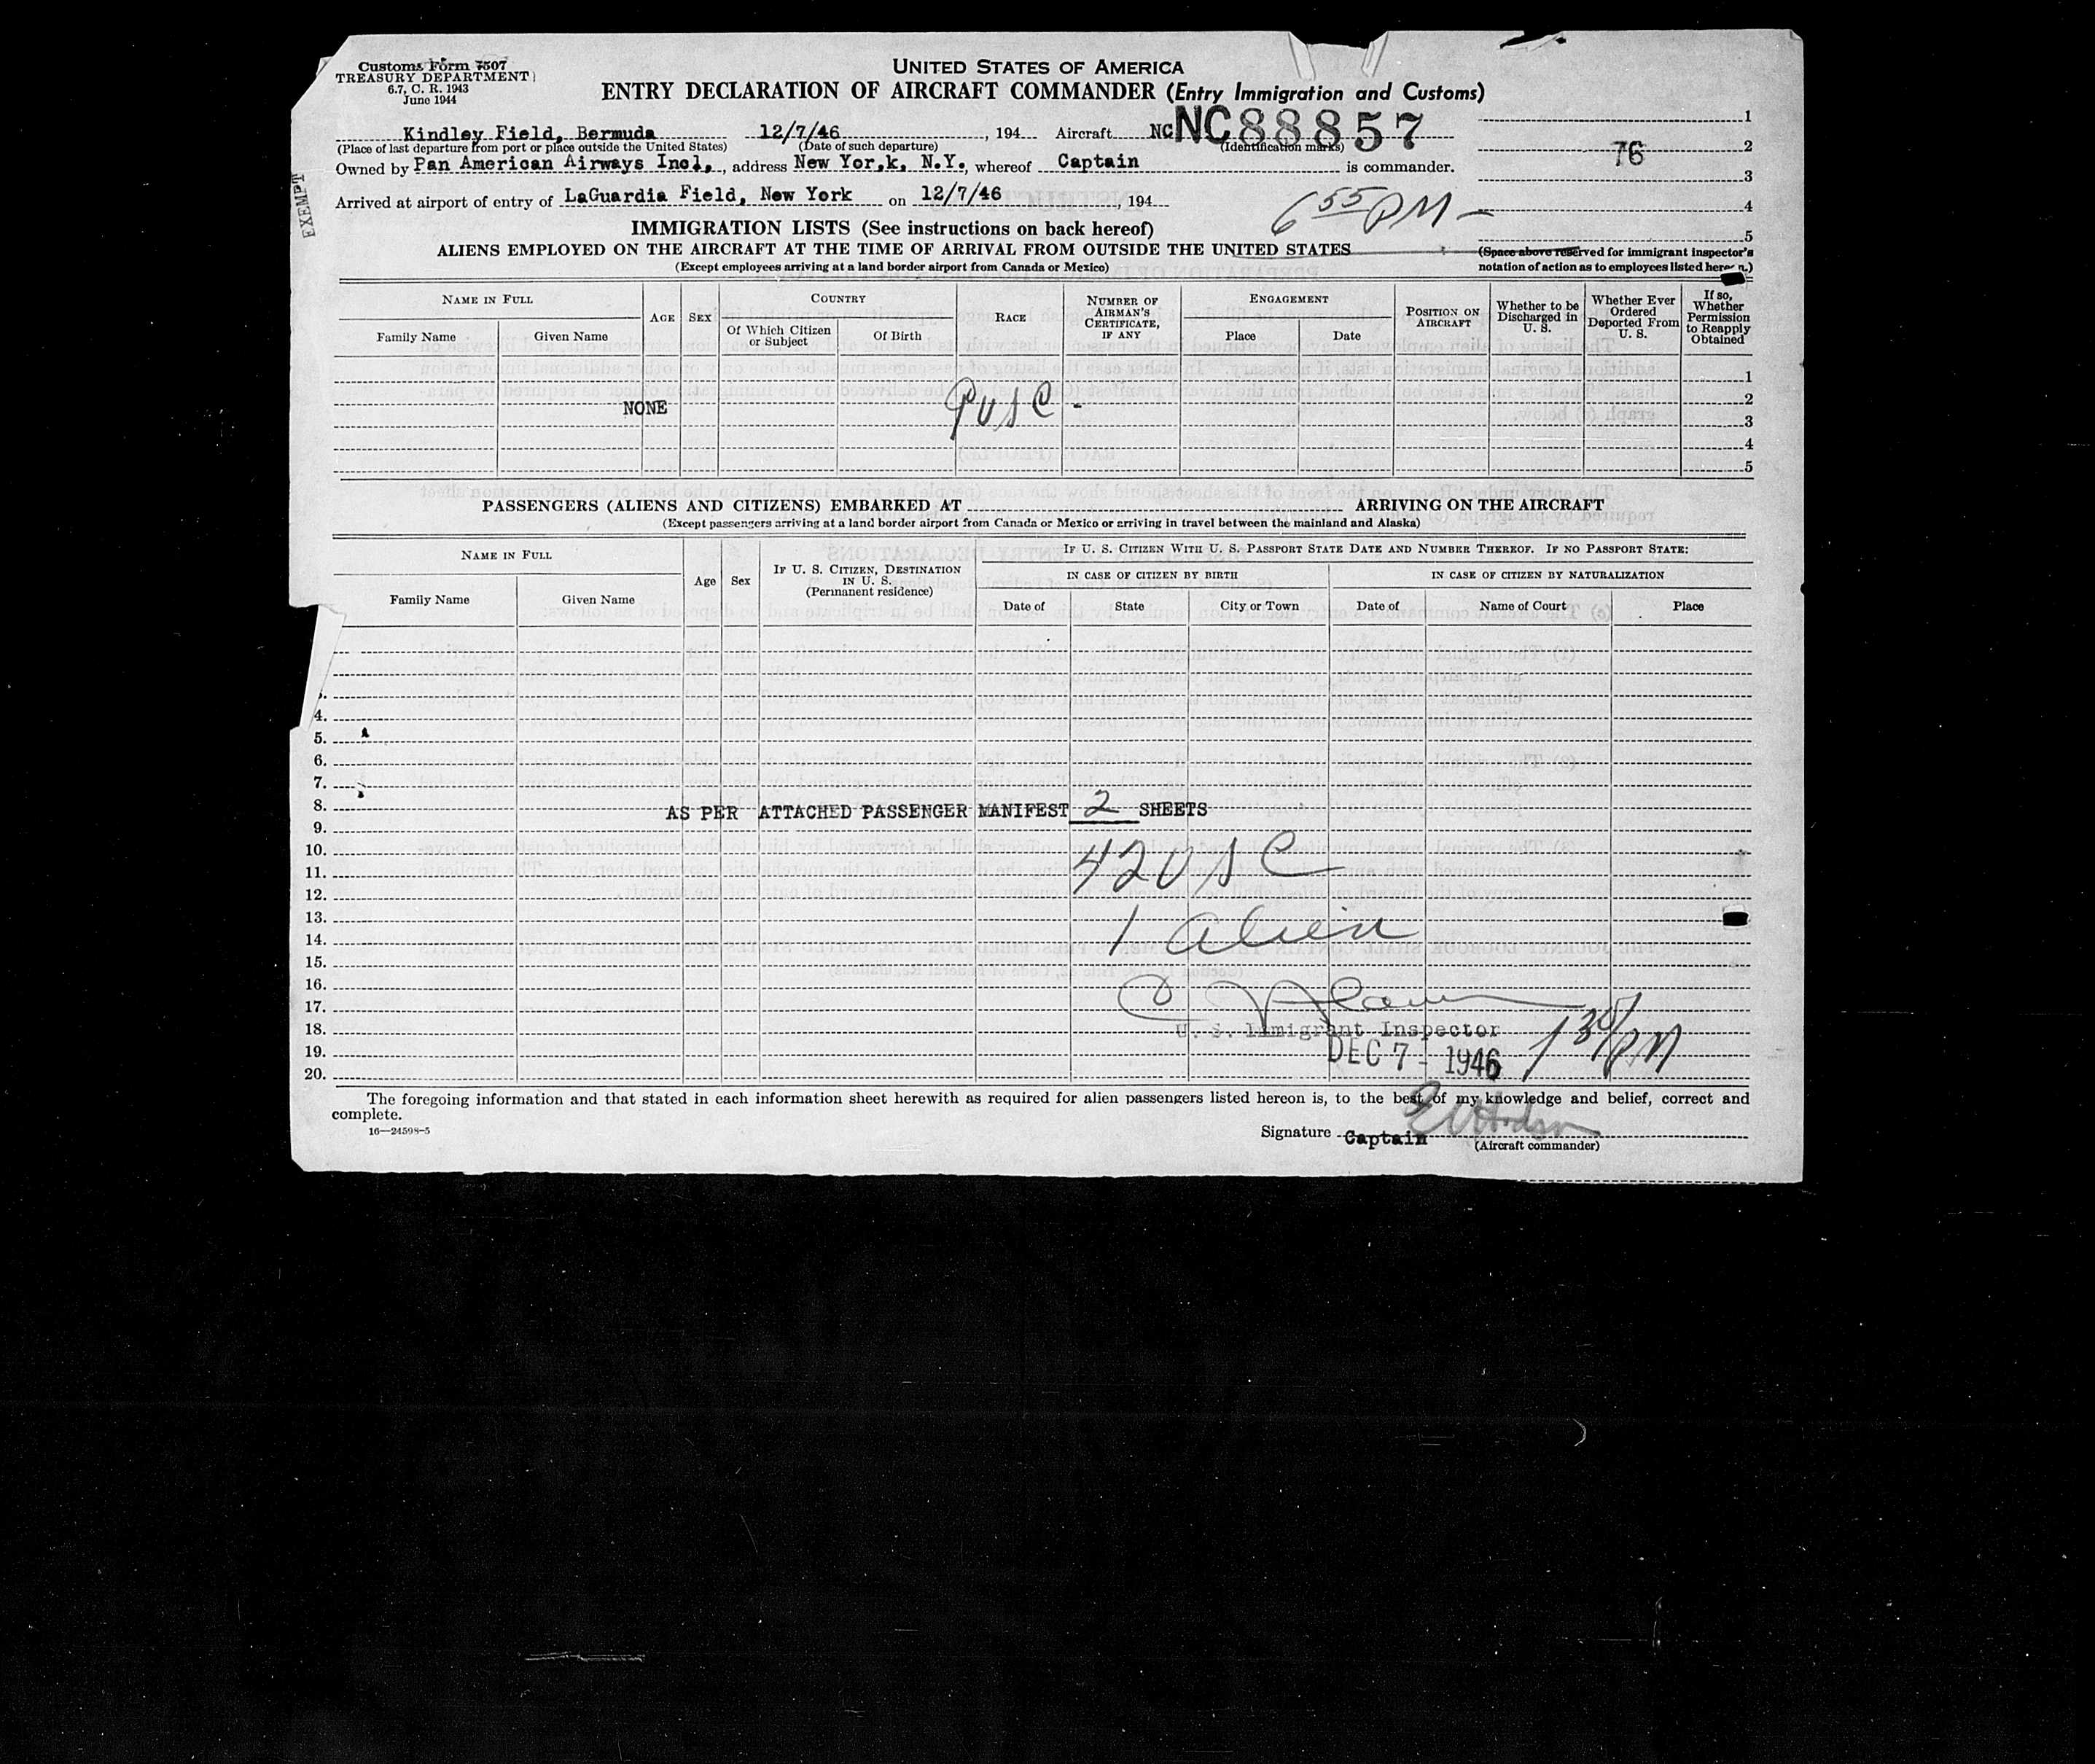 Customs Form 7507
TREASURY DEPARTMENT
6.7, C. R. 1943
June 1944
UNITED STATES OF AMERICA
ENTRY DECLARATION OF AIRCRAFT COMMANDER (Entry Immigration and Customs)
Kindley Field, Bermuda 12/7/46, 194 Aircraft NC NC88857
(Place of last departure from port or place outside the United States) (Date of such departure) (Identification marks)
Owned by Pan American Airways Inc1., address New Yor,k, N.Y., whereof Captain is commander.
Arrived at airport of entry of LaGuardia Field, New York on 12/7/46, 194
EXEMPT
6 55 PM -
1
2
76
3
4
5
IMMIGRATION LISTS (See instructions on back hereof)
ALIENS EMPLOYED ON THE AIRCRAFT AT THE TIME OF ARRIVAL FROM OUTSIDE THE UNITED STATES
(Except employees arriving at a land border airport from Canada or Mexico)
(Space above reserved for immigrant inspector's
notation of action as to employees listed hereon.)
NAME IN FULL
Family Name
Given Name
AGE
SEX
COUNTRY
Of Which Citizen or Subject
Of Birth
RACE
NUMBER OF AIRMAN'S CERTIFICATE, IF ANY
ENGAGEMENT
Place
Date
POSITION ON AIRCRAFT
Whether to be Discharged in U. S.
Whether Ever Ordered Deported From U. S.
If so, Whether Permission to Reapply Obtained
1
2
3
4
5
NONE
USC -
PASSENGERS (ALIENS AND CITIZENS) EMBARKED AT ARRIVING ON THE AIRCRAFT
(Except passengers arriving at a land border airport from Canada or Mexico or arriving in travel between the mainland and Alaska)
NAME IN FULL
Family Name
Given Name
Age
Sex
IF U. S. CITIZEN, DESTINATION IN U. S.
(Permanent residence)
IF U. S. CITIZEN WITH U. S. PASSPORT STATE DATE AND NUMBER THEREOF. IF NO PASSPORT STATE:
IN CASE OF CITIZEN BY BIRTH
IN CASE OF CITIZEN BY NATURALIZATION
Date of
State
City or Town
Date of
Name of Court
Place
3.
4.
5.
6.
7.
8.
AS PER ATTACHED PASSENGER MANIFEST 2 SHEETS
9.
10.
11.
42 USC
12.
13.
14.
1 alien
15.
16.
17.
18.
U. S. Immigrant Inspector
19.
DEC 7 - 1946 7 30 PM
20.
The foregoing information and that stated in each information sheet herewith as required for alien passengers listed hereon is, to the best of my knowledge and belief, correct and
complete.
16—24598-5
Signature Captain E W Hodson
(Aircraft commander)